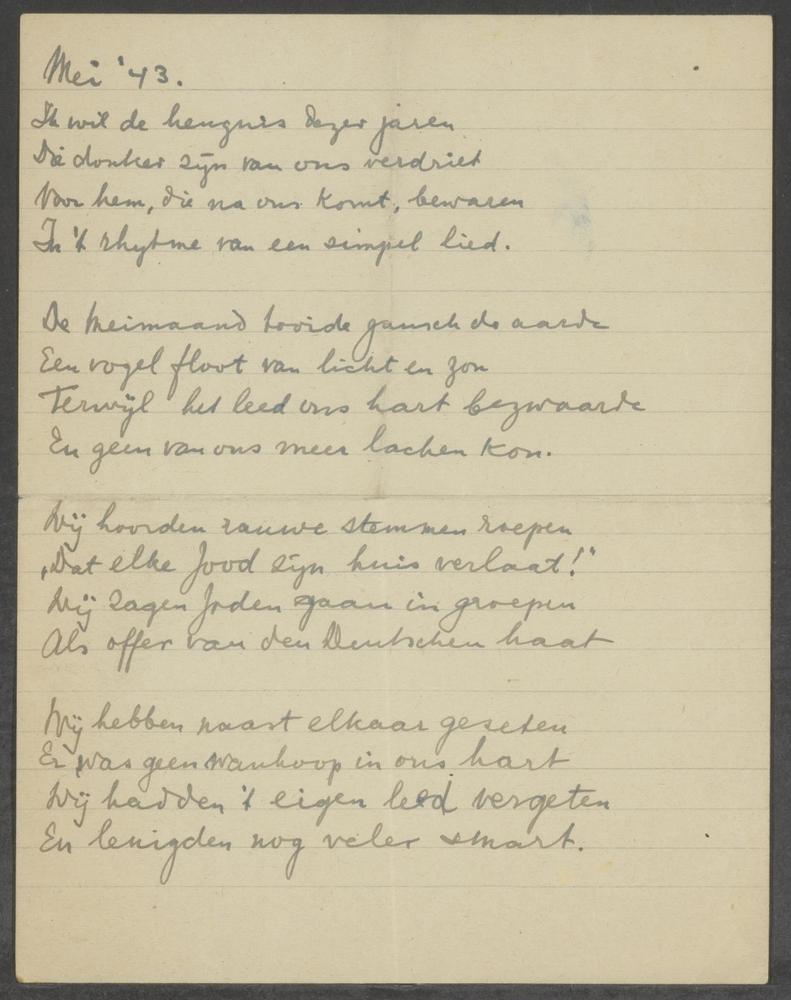 Mei '43.
Ik wil de heugnis dezer jaren
Die donker zijn van ons verdriet
Voor hem, die na ons komt, bewaren
In 't rhytme van een simpel lied.
De Meimaand tooide gansch de aarde
Een vogel floot van licht en zon
Terwijl het leed ons hart bezwaarde
En geen van ons meer lachen kon.
Wij hoorden rauwe stemmen roepen
„Dat elke Jood zijn huis verlaat!"
Wij zagen Joden gaan in groepen
Als offer van den Deutschen haat
Wij hebben naast elkaar gezeten
Er was geen wanhoop in ons hart
Wij hadden 't eigen leed vergeten
En lenigden nog veler smart.